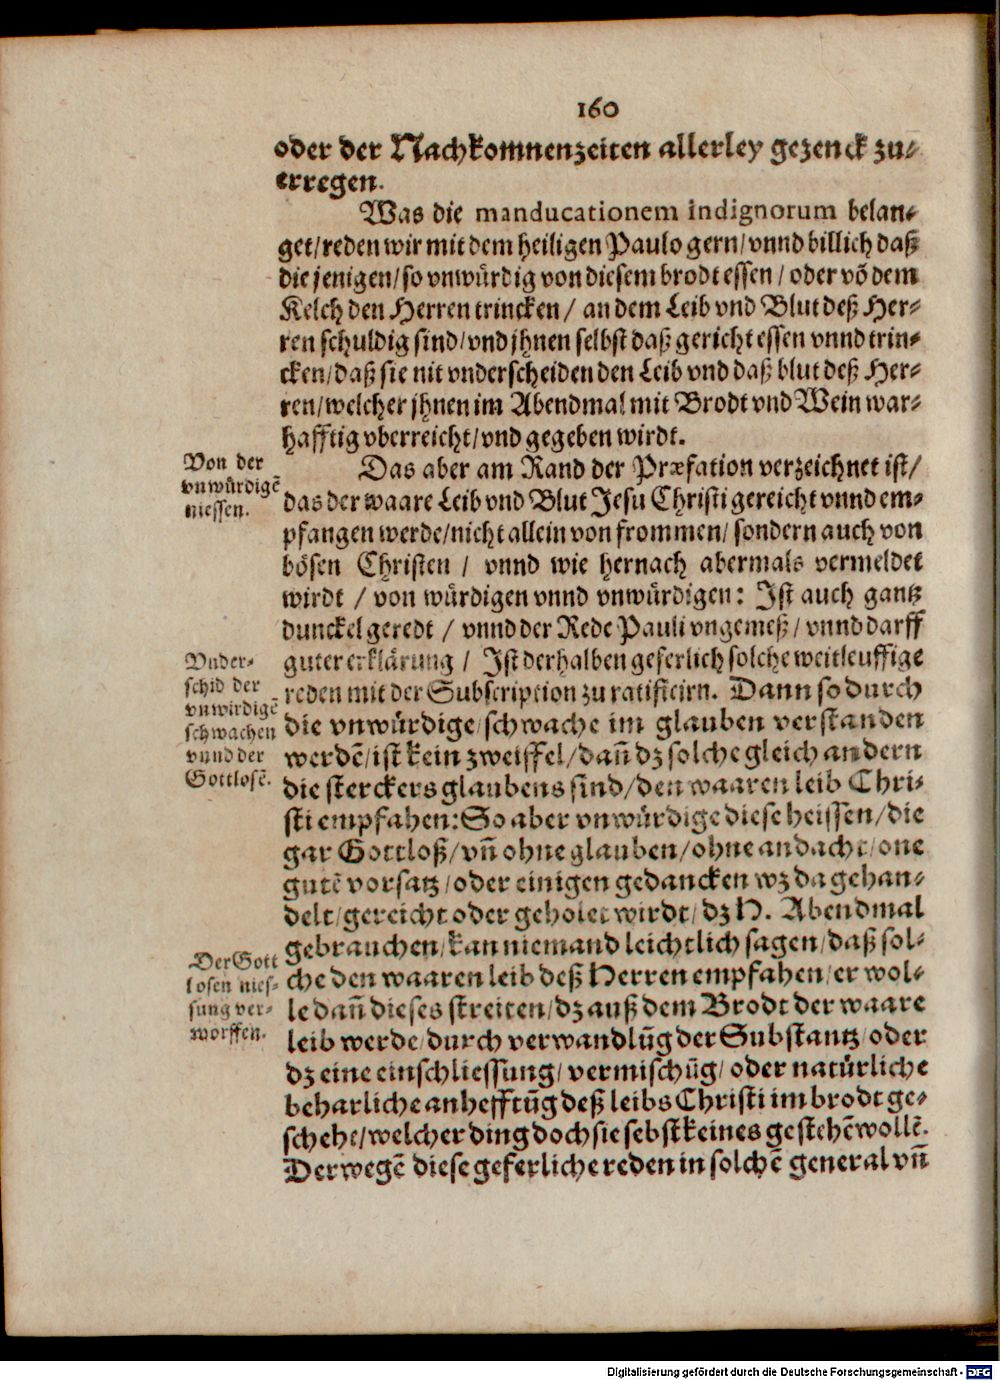 160
oder der Nachkomnenzeiten allerley gezenck zu-
erregen.
Was die manducationem indignorum belan-
get/reden wir mit dem heiligen Paulo gern/vnnd billich daß
die jenigen/so vnwürdig von diesem brodt essen/oder võ dem
Kelch den Herren trincken/an dem Leib vnd Blut deß Her-
ren schuldig sind/vnd jhnen selbst daß gericht essen vnnd trin-
cken/daß sie nit vnderscheiden den Leib vnd daß blut deß Her-
ren/welcher jhnen im Abendmal mit Brodt vnd Wein war-
hafftig vberreicht/vnd gegeben wirdt.
Von der
vnwürdigẽ
niessen.
Das aber am Rand der Præfation verzeichnet ist/
das der waare Leib vnd Blut Jesu Christi gereicht vnnd em-
pfangen werde/nicht allein von frommen/sondern auch von
bösen Christen/vnnd wie hernach abermals vermeldet
wirdt/von würdigen vnnd vnwürdigen: Ist auch gantz
dunckel geredt/vnnd der Rede Pauli vngemeß/vnnd darff
guter erklärung/Ist derhalben geferlich solche weitleuffige
Vnder-
schid der
vnwirdigẽ
schwachen
vnnd der
Gottlosẽ.
reden mit der Subscription zu ratificirn. Dann so durch
die vnwürdige/schwache im glauben verstanden
werdẽ/ist kein zweiffel/dañ dz solche gleich andern
die sterckers glaubens sind/den waaren leib Chri-
sti empfahen: So aber vnwürdige diese heissen/die
gar Gottloß/vñ ohne glauben/ohne andacht/one
gutẽ vorsatz/oder einigen gedancken wz da gehan-
delt/gereicht oder geholet wirdt/dz H. Abendmal
gebrauchen/kan niemand leichtlich sagen/daß sol-
Der Gott
losen nies-
sung ver-
worffen.
che den waaren leib deß Herren empfahen/er wol-
le dañ dieses streiten/dz auß dem Brodt der waare
leib werde/durch verwandlũg der Substantz/oder
dz eine einschliessung/vermischũg/oder natürliche
beharliche anhefftũg deß leibs Christi im brodt ge-
schehe/welcher ding doch sie sebst keines gestehẽ wollẽ.
Derwegẽ diese geferliche reden in solchẽ general vñ
Digitalisierung gefördert durch die Deutsche Forschungsgemeinschaft - DFG